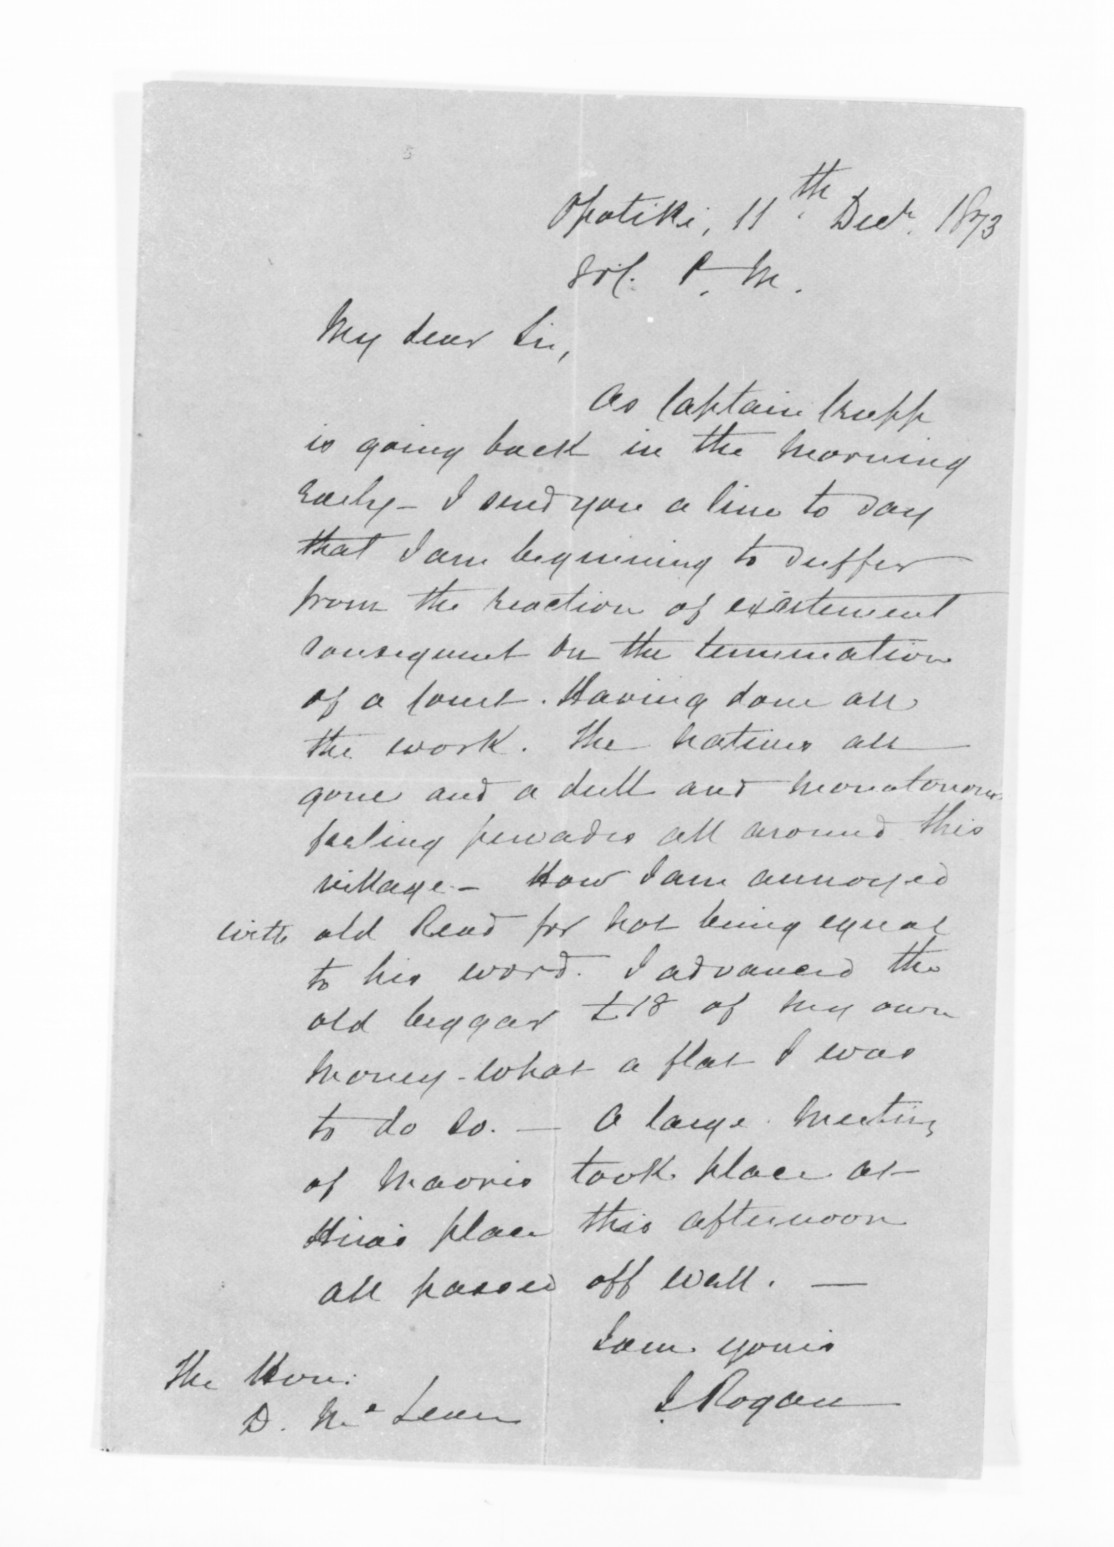 Opotiki, 11th Decr. 1873
P. M.
My dear Sir,
As Captain
is going back in the morning
early - I send you a line to say
that I am beginning to suffer
from the reaction of exsitement
consequent on the termination
of a Court. Having done all
the work. The natives all
gone and a dull and monotonous
feeling pervades all around this
village. - How I am annoyed
with old Read for not being equal
to his word. I advanced the
old beggar £18 of my own
money - what a flat I was
to do so. — A large meeting
of Maoris took place at
place this afternoon
all passed off well. —
I am yours
J Rogan
The Hon:
D. McLean